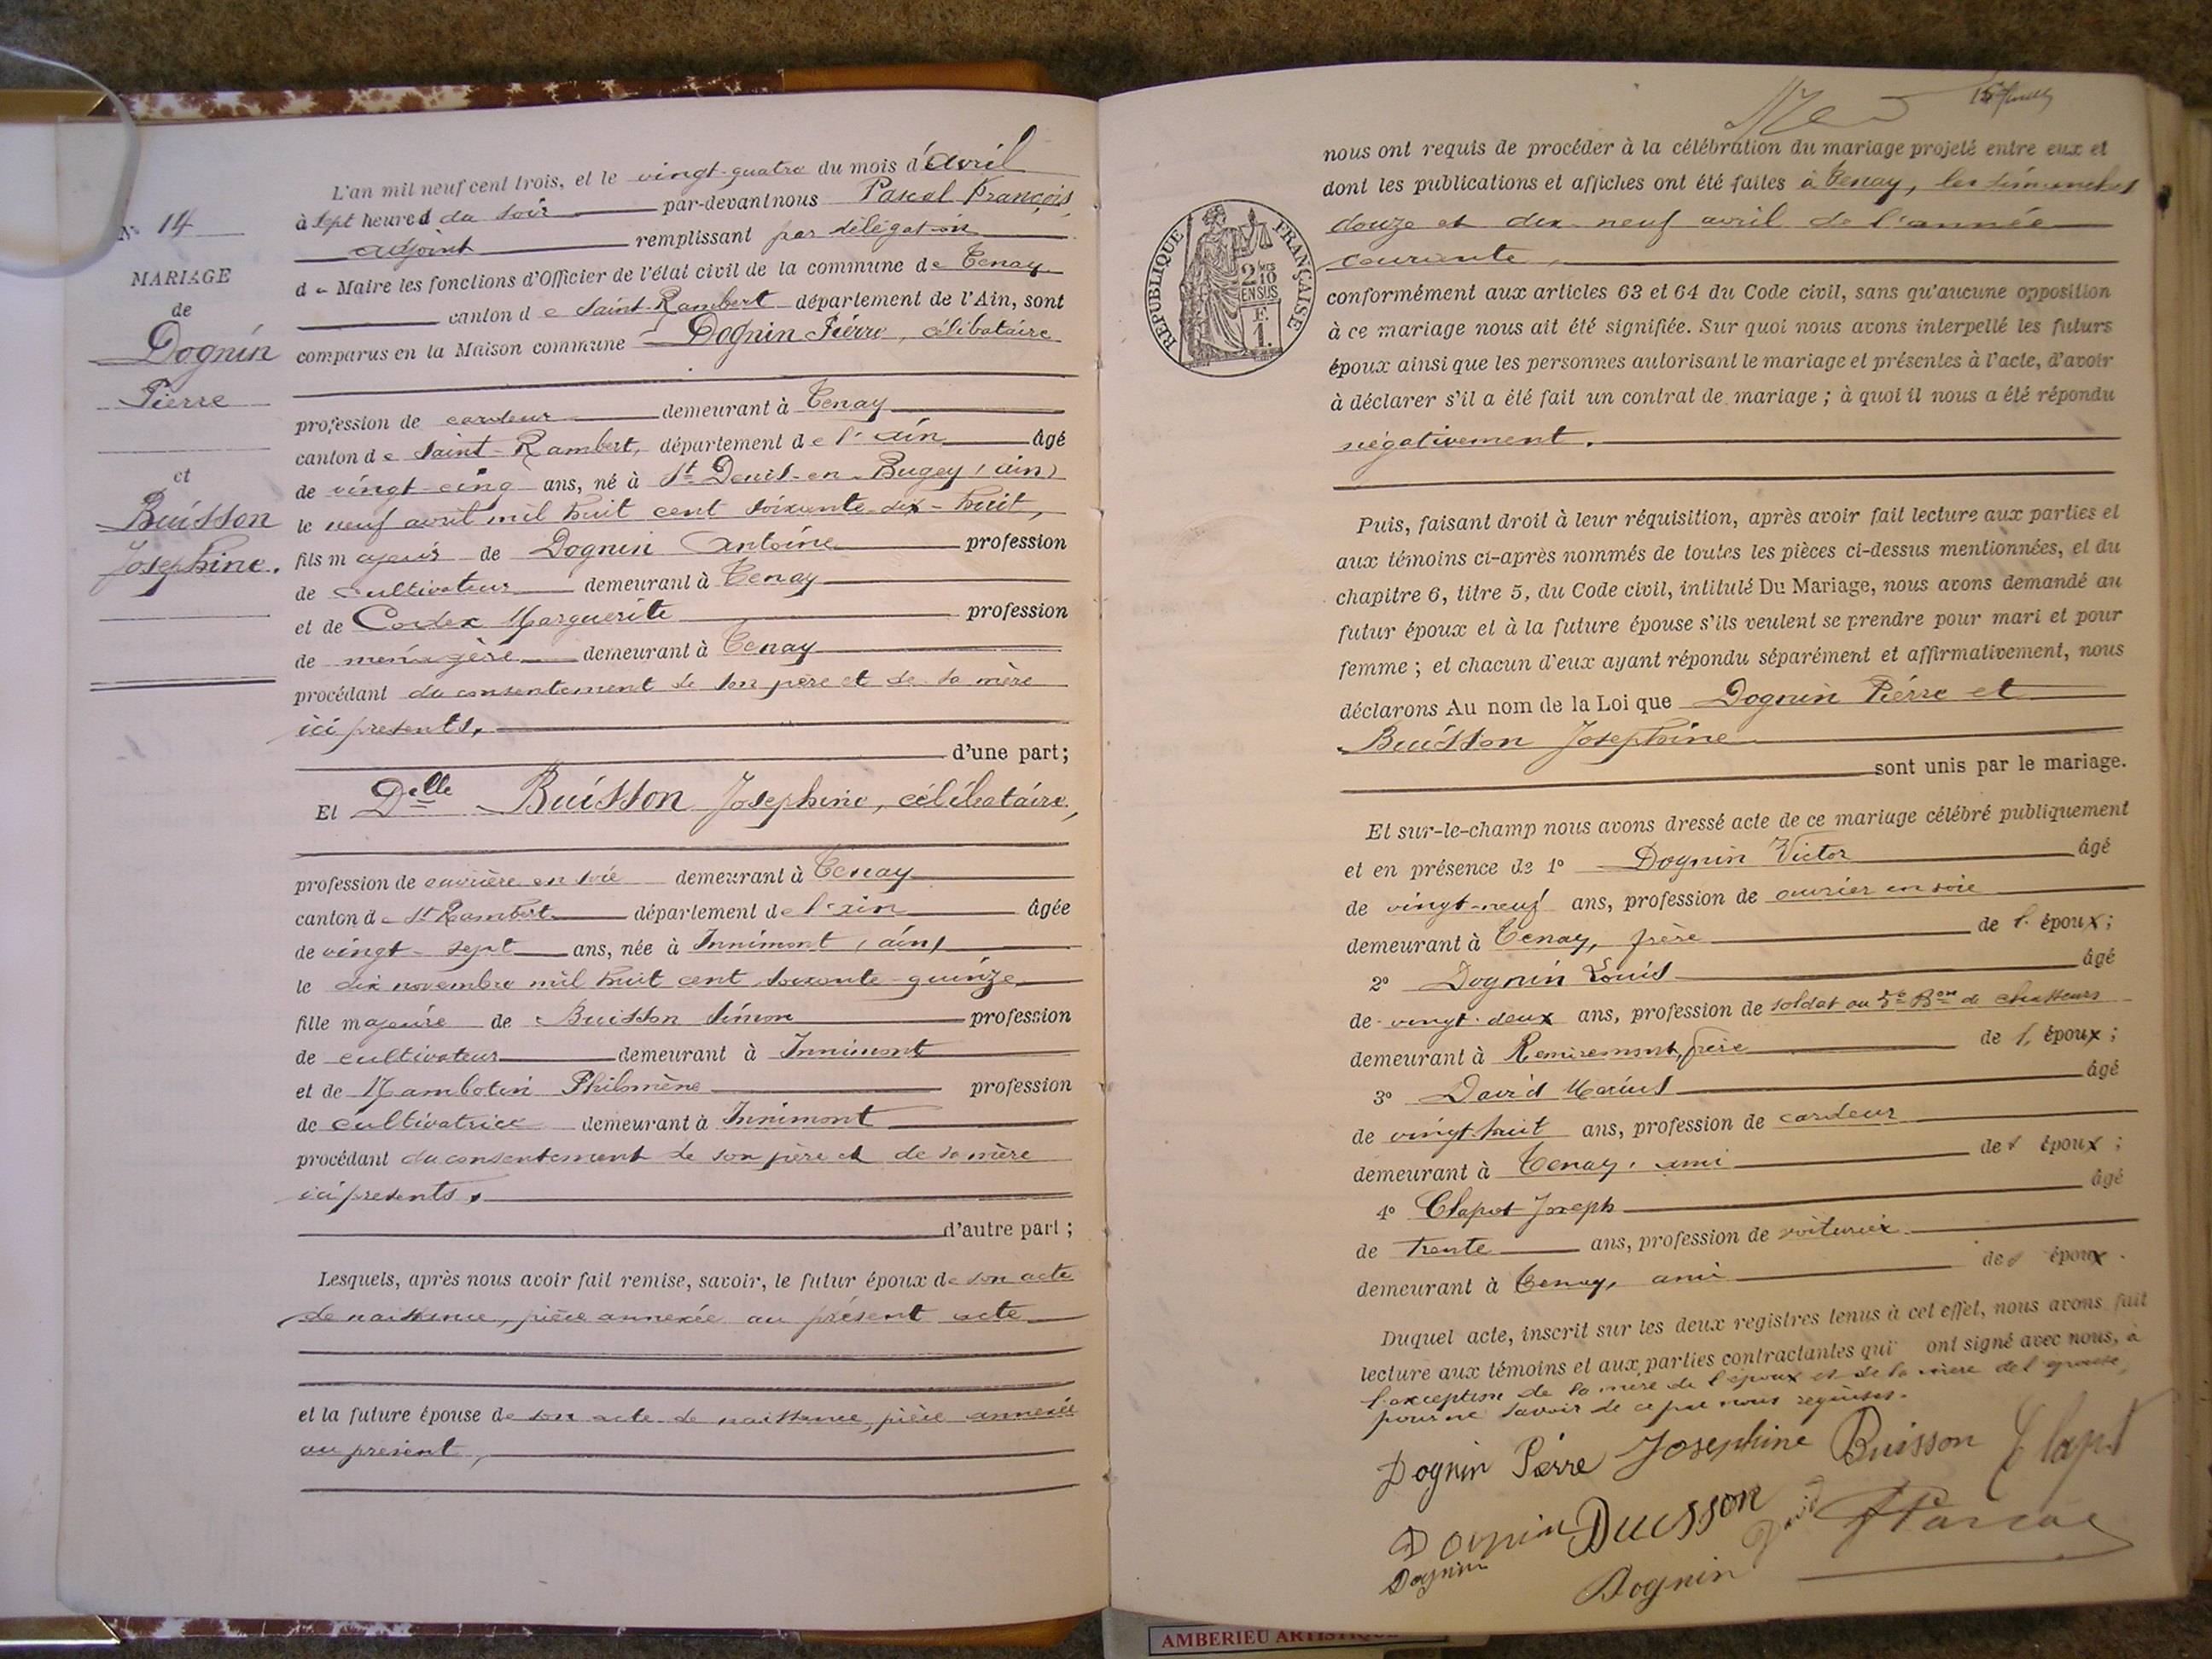 L'an mil neuf cent trois, et le vingt-quatre du mois d'avril
à sept heures du soir par-devant nous Pascal François,
adjoint remplissant par délégation
de Maire les fonctions d'Officier de l'état civil de la commune de Tenay
canton de Saint-Rambert département de l'Ain, sont
comparus en la Maison commune Dognin Pierre, célibataire
profession de cardeur demeurant à Tenay
canton de Saint-Rambert, département de l'ain âgé
de vingt-cinq ans, né à St Denis-en-Bugey (ain)
le neuf avril mil huit cent soixante-dix-huit,
fils majeur de Dognin Antoine profession
de cultivateur demeurant à Tenay
et de Cordex Marguerite profession
de ménagère demeurant à Tenay
procédant du consentement de son père et de sa mère
ici présents,
d'une part;
Et Delle Buisson Josephine, célibataire,
profession de ouvrière en soie demeurant à Tenay
canton de St Rambert département de l'ain âgée
de vingt-sept ans, née à Innimont (ain)
le dix novembre mil huit cent soixante-quinze
fille majeure de Buisson Simon profession
de cultivateur demeurant à Innimont
et de Mambotin Philomène profession
de cultivatrice demeurant à Innimont
procédant du consentement de son père et de sa mère
ici présents,
d'autre part;
Lesquels, après nous avoir fait remise, savoir, le futur époux de son acte
de naissance, pièce annexée au présent acte
et la future épouse de son acte de naissance, pièce annexée
au présent,
No 14
MARIAGE
de
Dognin
Pierre
et
Buisson
Josephine.
nous ont requis de procéder à la célébration du mariage projeté entre eux et
dont les publications et affiches ont été faites à Tenay, les dimanches
douze et dix-neuf avril de l'année
courante,
conformément aux articles 63 et 64 du Code civil, sans qu'aucune opposition
à ce mariage nous ait été signifiée. Sur quoi nous avons interpellé les futurs
époux ainsi que les personnes autorisant le mariage et présentes à l'acte, d'avoir
à déclarer s'il a été fait un contrat de mariage; à quoi il nous a été répondu
négativement.
Puis, faisant droit à leur réquisition, après avoir fait lecture aux parties et
aux témoins ci-après nommés de toutes les pièces ci-dessus mentionnées, et du
chapitre 6, titre 5, du Code civil, intitulé Du Mariage, nous avons demandé au
futur époux et à la future épouse s'ils veulent se prendre pour mari et pour
femme; et chacun d'eux ayant répondu séparément et affirmativement, nous
déclarons Au nom de la Loi que Dognin Pierre et
Buisson Josephine
sont unis par le mariage.
Et sur-le-champ nous avons dressé acte de ce mariage célébré publiquement
et en présence de 1o Dognin Victor âgé
de vingt-neuf ans, profession de ouvrier en soie
demeurant à Tenay, frère de l'époux;
2o Dognin Louis âgé
de vingt-deux ans, profession de soldat au 5e Bon de chasseurs
demeurant à Remiremont, frère de l'époux;
3o David Marius âgé
de vingt-huit ans, profession de cardeur
demeurant à Tenay, ami des époux;
4o Clapot Joseph âgé
de trente ans, profession de voiturier
demeurant à Tenay, ami des époux.
Duquel acte, inscrit sur les deux registres tenus à cet effet, nous avons fait
lecture aux témoins et aux parties contractantes qui ont signé avec nous, à
l'exception de la mère de l'époux et de la mère de l'épouse,
pour ne savoir de ce par nous requises.
Dognin Pierre Josephine Buisson Clapot
Dognin Buisson David Pascal
Dognin Dognin
REPUBLIQUE FRANÇAISE
2/10
EN SUS
F.
1.
AMBERIEU ARTISTIQUE